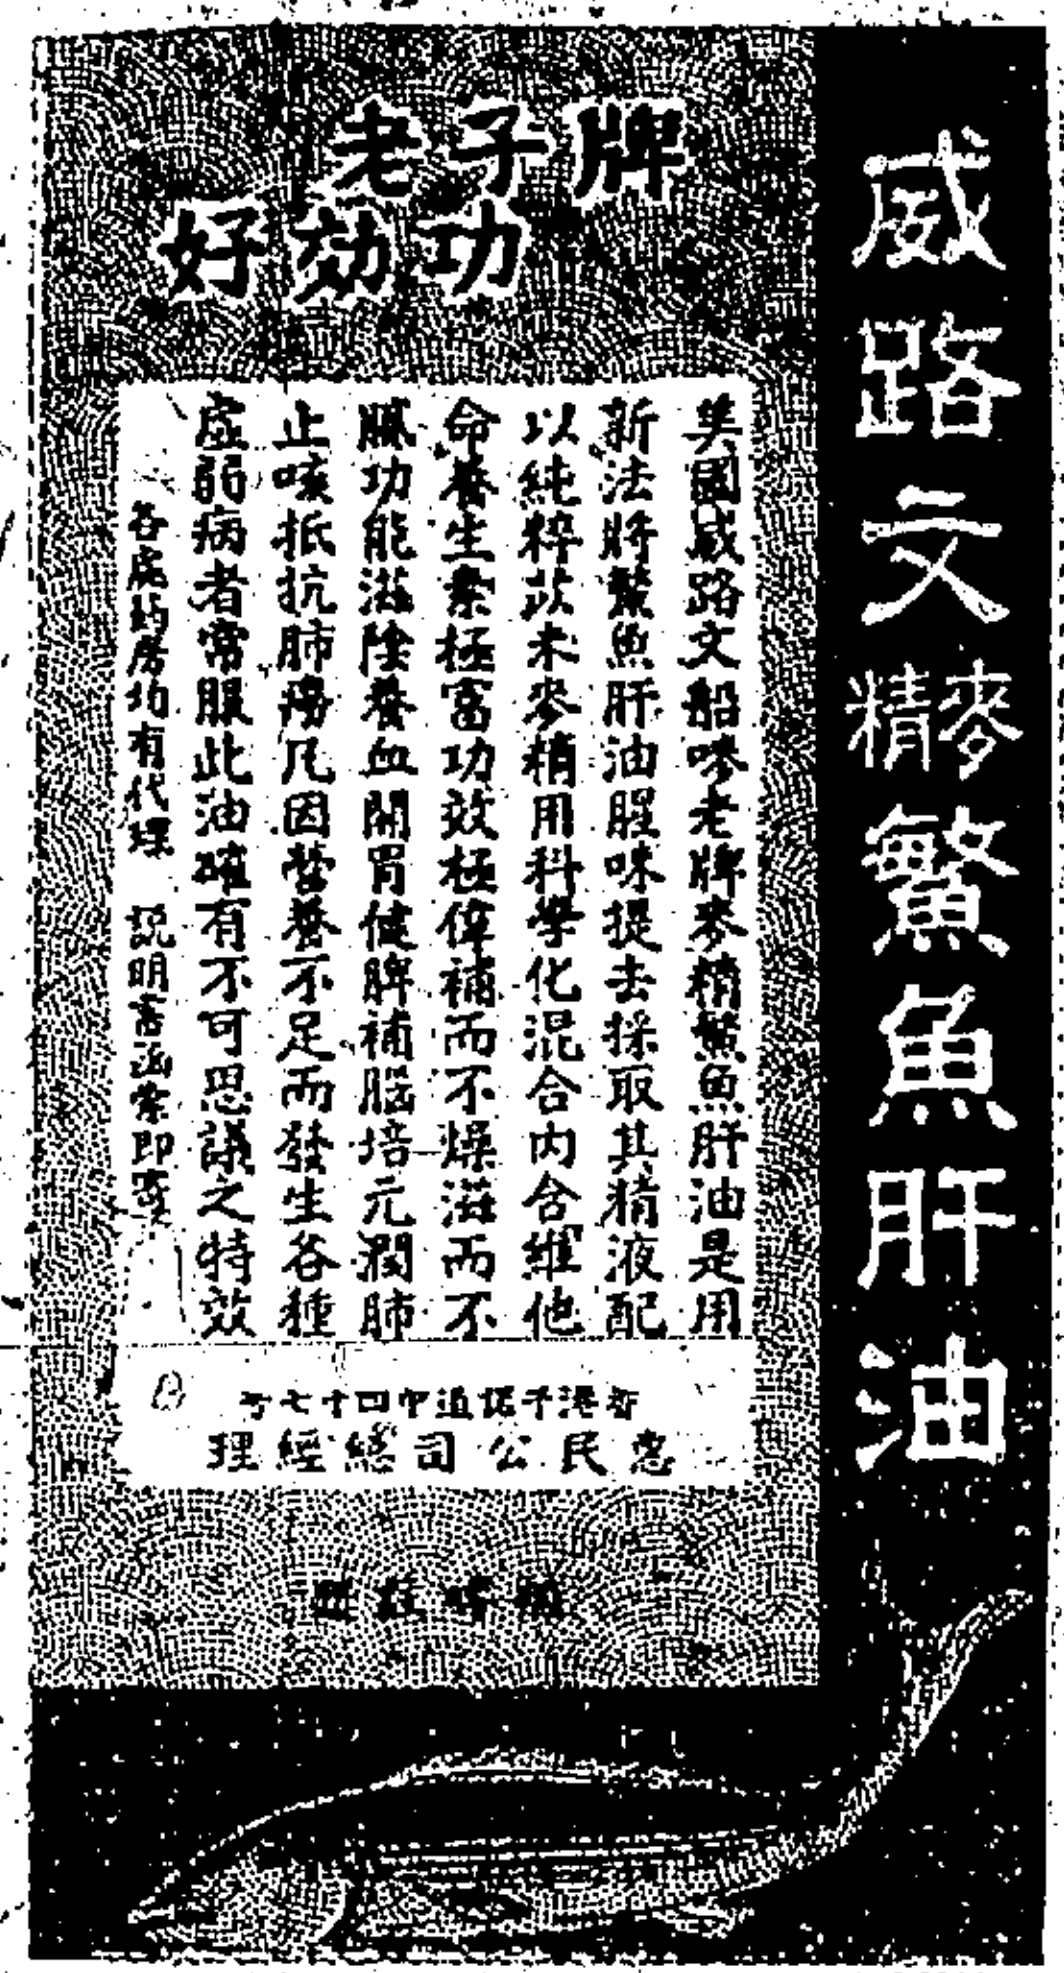 威路文麥精鰵魚肝油
牌子老
功効好
美國威路文船嘜老牌麥精鰵魚肝油是用
新法將鰵魚肝油腥味提去採取其精液配
以純粹苡米麥精用科學化混合内含維他
命養生素極富功效極偉補而不燥滋而不
膩功能滋陰養血開胃健脾補腦培元潤肺
止咳抵抗肺癆凡因營養不足而發生各種
虛弱病者常服此油確有不可思議之特效
各處葯房均有代理 説明書函索即寄
香港干諾道中四十七号
惠民公司總經理